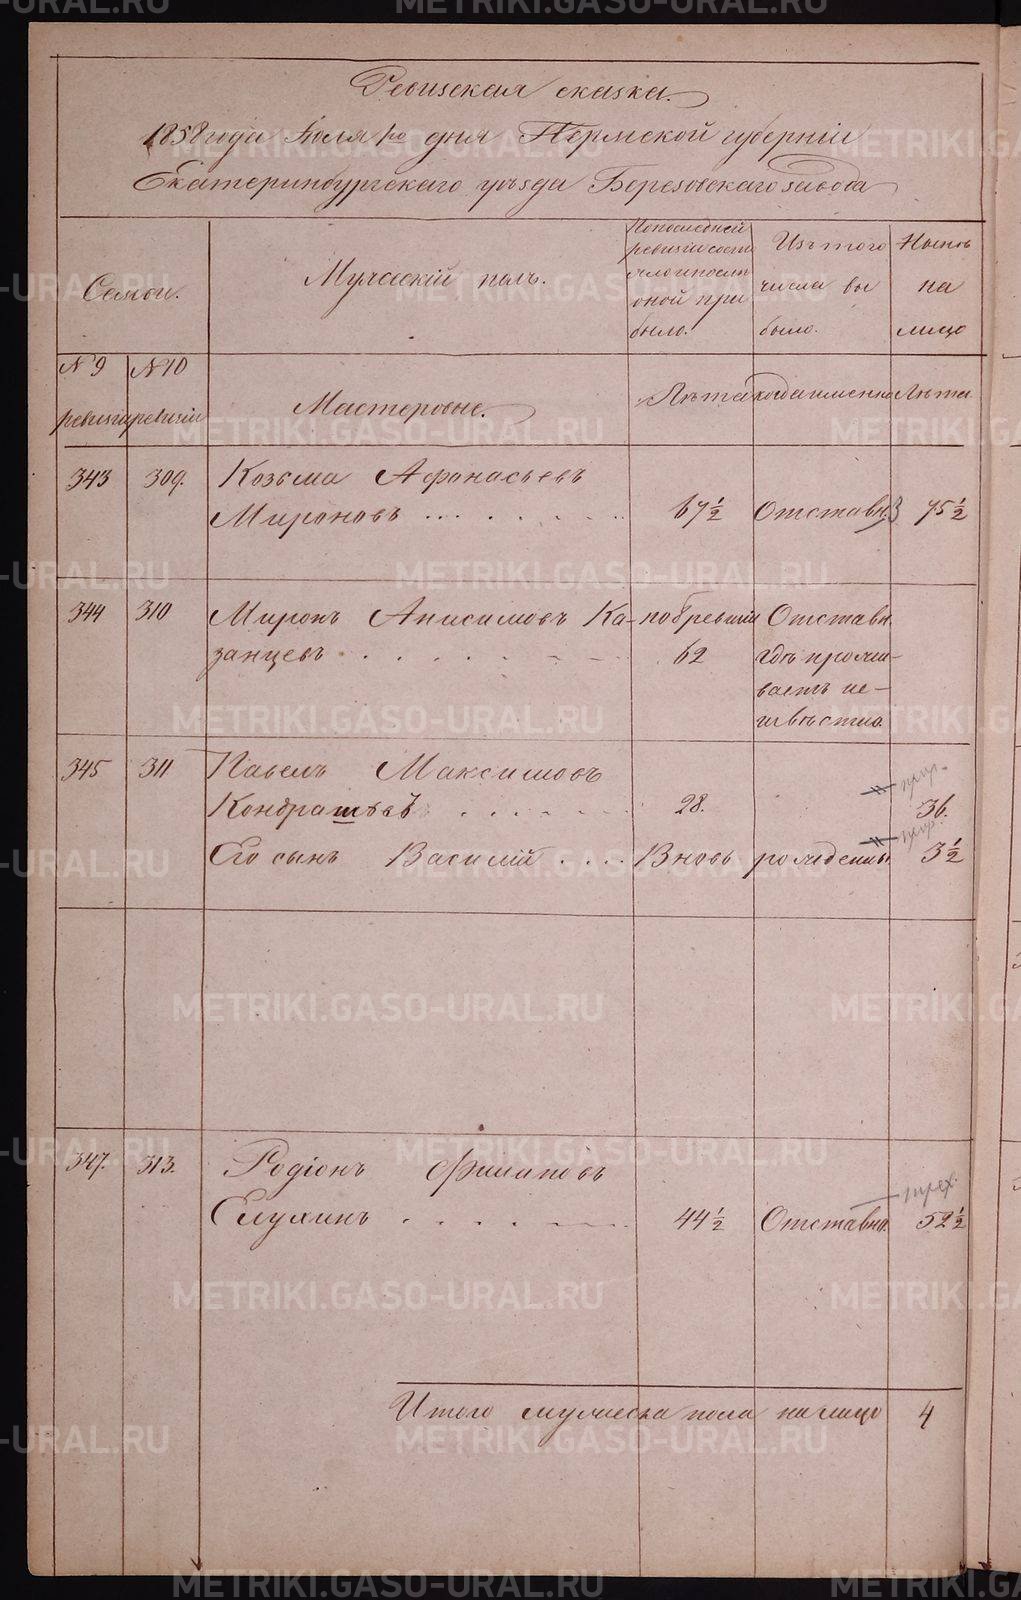 Ревизская сказка.
1858 года Іюля 1го дня Пермской губерніи
Екатеринбургскаго уѣзда Березовскаго завода
Семьи.
Мужескій полъ.
По последней
ревизіи состо
яло и после
оной при
было.
Изъ того
числа вы
было.
Нынѣ
на
лицо
№ 9
ревизіи
№ 10
ревизіи
Мастеровые.
Лѣта
когда именно
Лѣта.
343 309. Козьма Афонасьевъ
Мироновъ 67½ Отставн. 75½
344 310 Миронъ Анисимовъ Ка- Отставн.
занцевъ 62 гдѣ прожи-
ваетъ не-
извѣстно.
345 311 Павелъ Максимовъ
Кондратьевъ 28. 36.
Его сынъ Василій Вновь рожденны. 3½
347. 313. Родіонъ Филиповъ
Елухинъ 44½ Отставно. 52½
Итого мужеска пола на лицо 4
METRIKI.GASO-URAL.RU